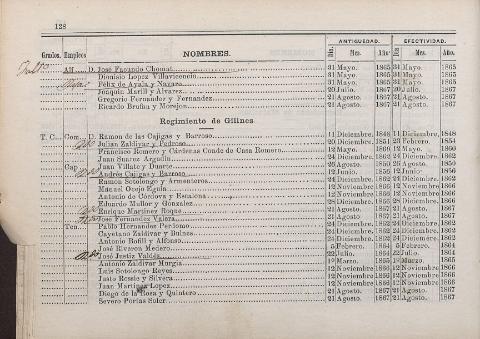 128
ANTIGUEDAD. EFECTIVIDAD.
Grados. Empleos NOMBRES. Dia. Mes. Año Dia. Mes. Año.
Alf. D. José Facundo Chomat 31 Mayo. 1865 31 Mayo. 1865
Dionisio Lopez Villavicencio 31 Mayo. 1865 31 Mayo. 1865
Felix de Ayala y Nazaro 31 Mayo. 1865 31 Mayo. 1865
Joaquin Marill y Alvarez 20 Julio. 1867 20 Julio. 1867
Gregorio Fernandez y Fernandez 21 Agosto 1867 21 Agosto. 1867
Ricardo Bruñn y Morejon 21 Agosto. 1867 21 Agosto. 1867
Regimiento de Güines.
T. C. Com. D. Ramon de las Cajigas y Barroso 11 Diciembre. 1848 11 Diciembre. 1848
Julian Zaldivar y Pedroso 20 Diciembre. 1851 23 Febrero. 1854
Francisco Romero y Cárdenas Conde de Casa Romero 12 Mayo. 1860 12 Mayo. 1860
Juan Suarez Argudin 24 Diciembre. 1862 24 Diciembre. 1862
Cap. Juan Villate y Duarte 26 Agosto. 1850 26 Agosto. 1850
Andrés Cajigas y Barroso 12 Junio. 1856 12 Junio. 1856
Ramon Sotolongo y Armenteros 24 Diciembre. 1862 24 Diciembre. 1862
Manuel Orejo Eguia 12 Noviembre 1866 12 Noviembre 1866
Antonio de Córdova y Estalona 12 Noviembre 1866 12 Noviembre 1866
Eduardo Muller y Gonzalez 28 Diciembre. 1866 28 Diciembre. 1866
Enrique Martinez Roque 21 Agosto. 1867 21 Agosto. 1867
José Fernandez Valera 21 Agosto. 1867 21 Agosto. 1867
Ten. Pablo Hernandez Perdomo 24 Diciembre. 1862 24 Diciembre. 1862
Cayetano Zaldivar y Bulnes 24 Diciembre. 1862 24 Diciembre. 1862
Antonio Bofill y Alfonso 24 Diciembre. 1862 24 Diciembre. 1862
José Riveron Medero 5 Febrero. 1864 5 Febrero. 1864
José Justiz Valdés 22 Julio. 1864 22 Julio. 1864
Antonio Zaldivar Murgia 1º Marzo. 1865 1º Marzo. 1865
Luis Sotolongo Reyes 12 Noviembre 1866 12 Noviembre 1866
Justo Rossie y Silvera 12 Noviembre 1866 12 Noviembre 1866
Juan Martinez Lopez 12 Noviembre 1866 12 Noviembre 1866
Diego de la Rosa y Quintero 21 Agosto. 1867 21 Agosto. 1867
Severo Porias Soler 21 Agosto. 1867 21 Agosto. 1867